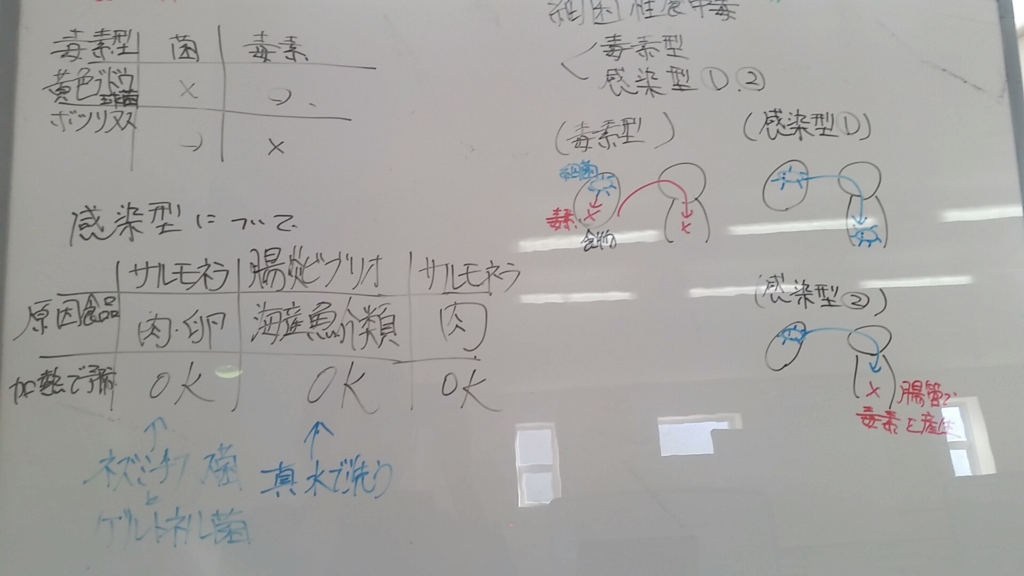 毒素型 菌 毒素
黄色ブドウ球菌 × ○
ボツリヌス ○ ×
感染型について
サルモネラ 腸炎ビブリオ サルモネラ
原因食品 肉・卵 海産魚介類 肉
加熱で予防 OK OK OK
↑ ↑
ネズミチフス菌 真水で洗う
と
ゲルトネル菌
細菌性食中毒
毒素型
感染型①、②
(毒素型)
細菌
毒素 × ×
食物
(感染型①)
(感染型②)
× 腸管で
毒素を産生